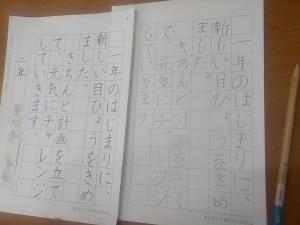 一年のはじまりに、
新しい目ひょうをきめ
ました。
きちんと計画を立て
て、元気にチャレンジ
していきます
一年のはじまりに、
新しい目ひょうをきめ
ました。
きちんと計画を立て
て、元気にチャレンジ
していきます。
二年